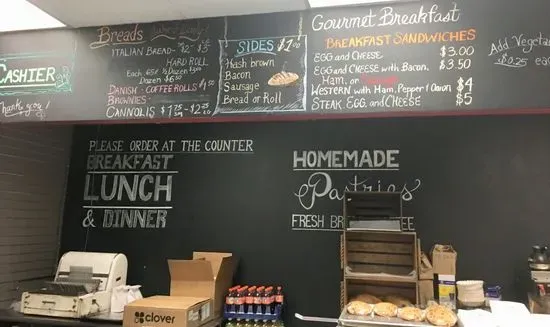 CASHIER
Thank you!
Breads
ITALIAN BREAD
HARD ROLL
Each .65¢ ½ Dozen $3.00
Dozen $6.00
DANISH - COFFEE ROLLS $1.50
BROWNIES
CANNOLIS $1.75 sm $2.25 LG
SIDES $1.00
Hash brown
Bacon
Sausage
Bread or Roll
Gourmet Breakfast
BREAKFAST SANDWICHES
EGG and CHEESE $3.00
EGG and CHEESE with Bacon, $3.50
HAM, or
WESTERN with Ham, Pepper & Onion $4
STEAK, EGG, and CHEESE $5
Add Vegetab
$0.25
PLEASE ORDER AT THE COUNTER
BREAKFAST
LUNCH
& DINNER
HOMEMADE
Pastries
FRESH
clover